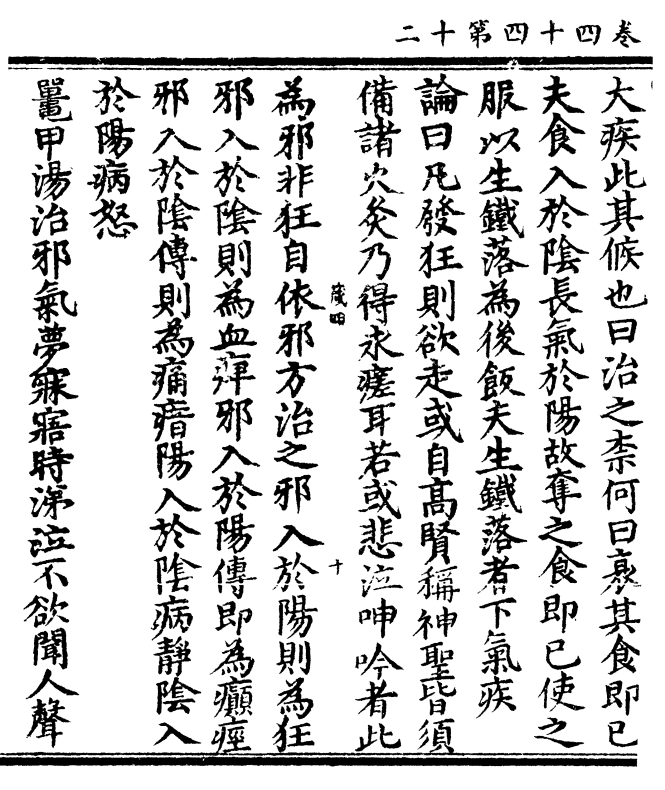 二十第四十四卷
大疾此其候也曰治之柰何曰衰其食即已
夫食入於陰長氣於陽故奪之食即已使之
服以生鐵落為後飯夫生鐵落者下氣疾
論曰凡發狂則欲走或自高賢稱神聖皆須
備諸火灸乃得永瘥耳若或悲泣呻吟者此
為邪非狂自依邪方治之邪入於陽則為狂
邪入於陰則為血痹邪入於陽傳即為癲痙
邪入於陰傳則為痛瘖陽入於陰病靜陰入
於陽病怒
鼉甲湯治邪氣夢寐寤時涕泣不欲聞人聲
歲四
十